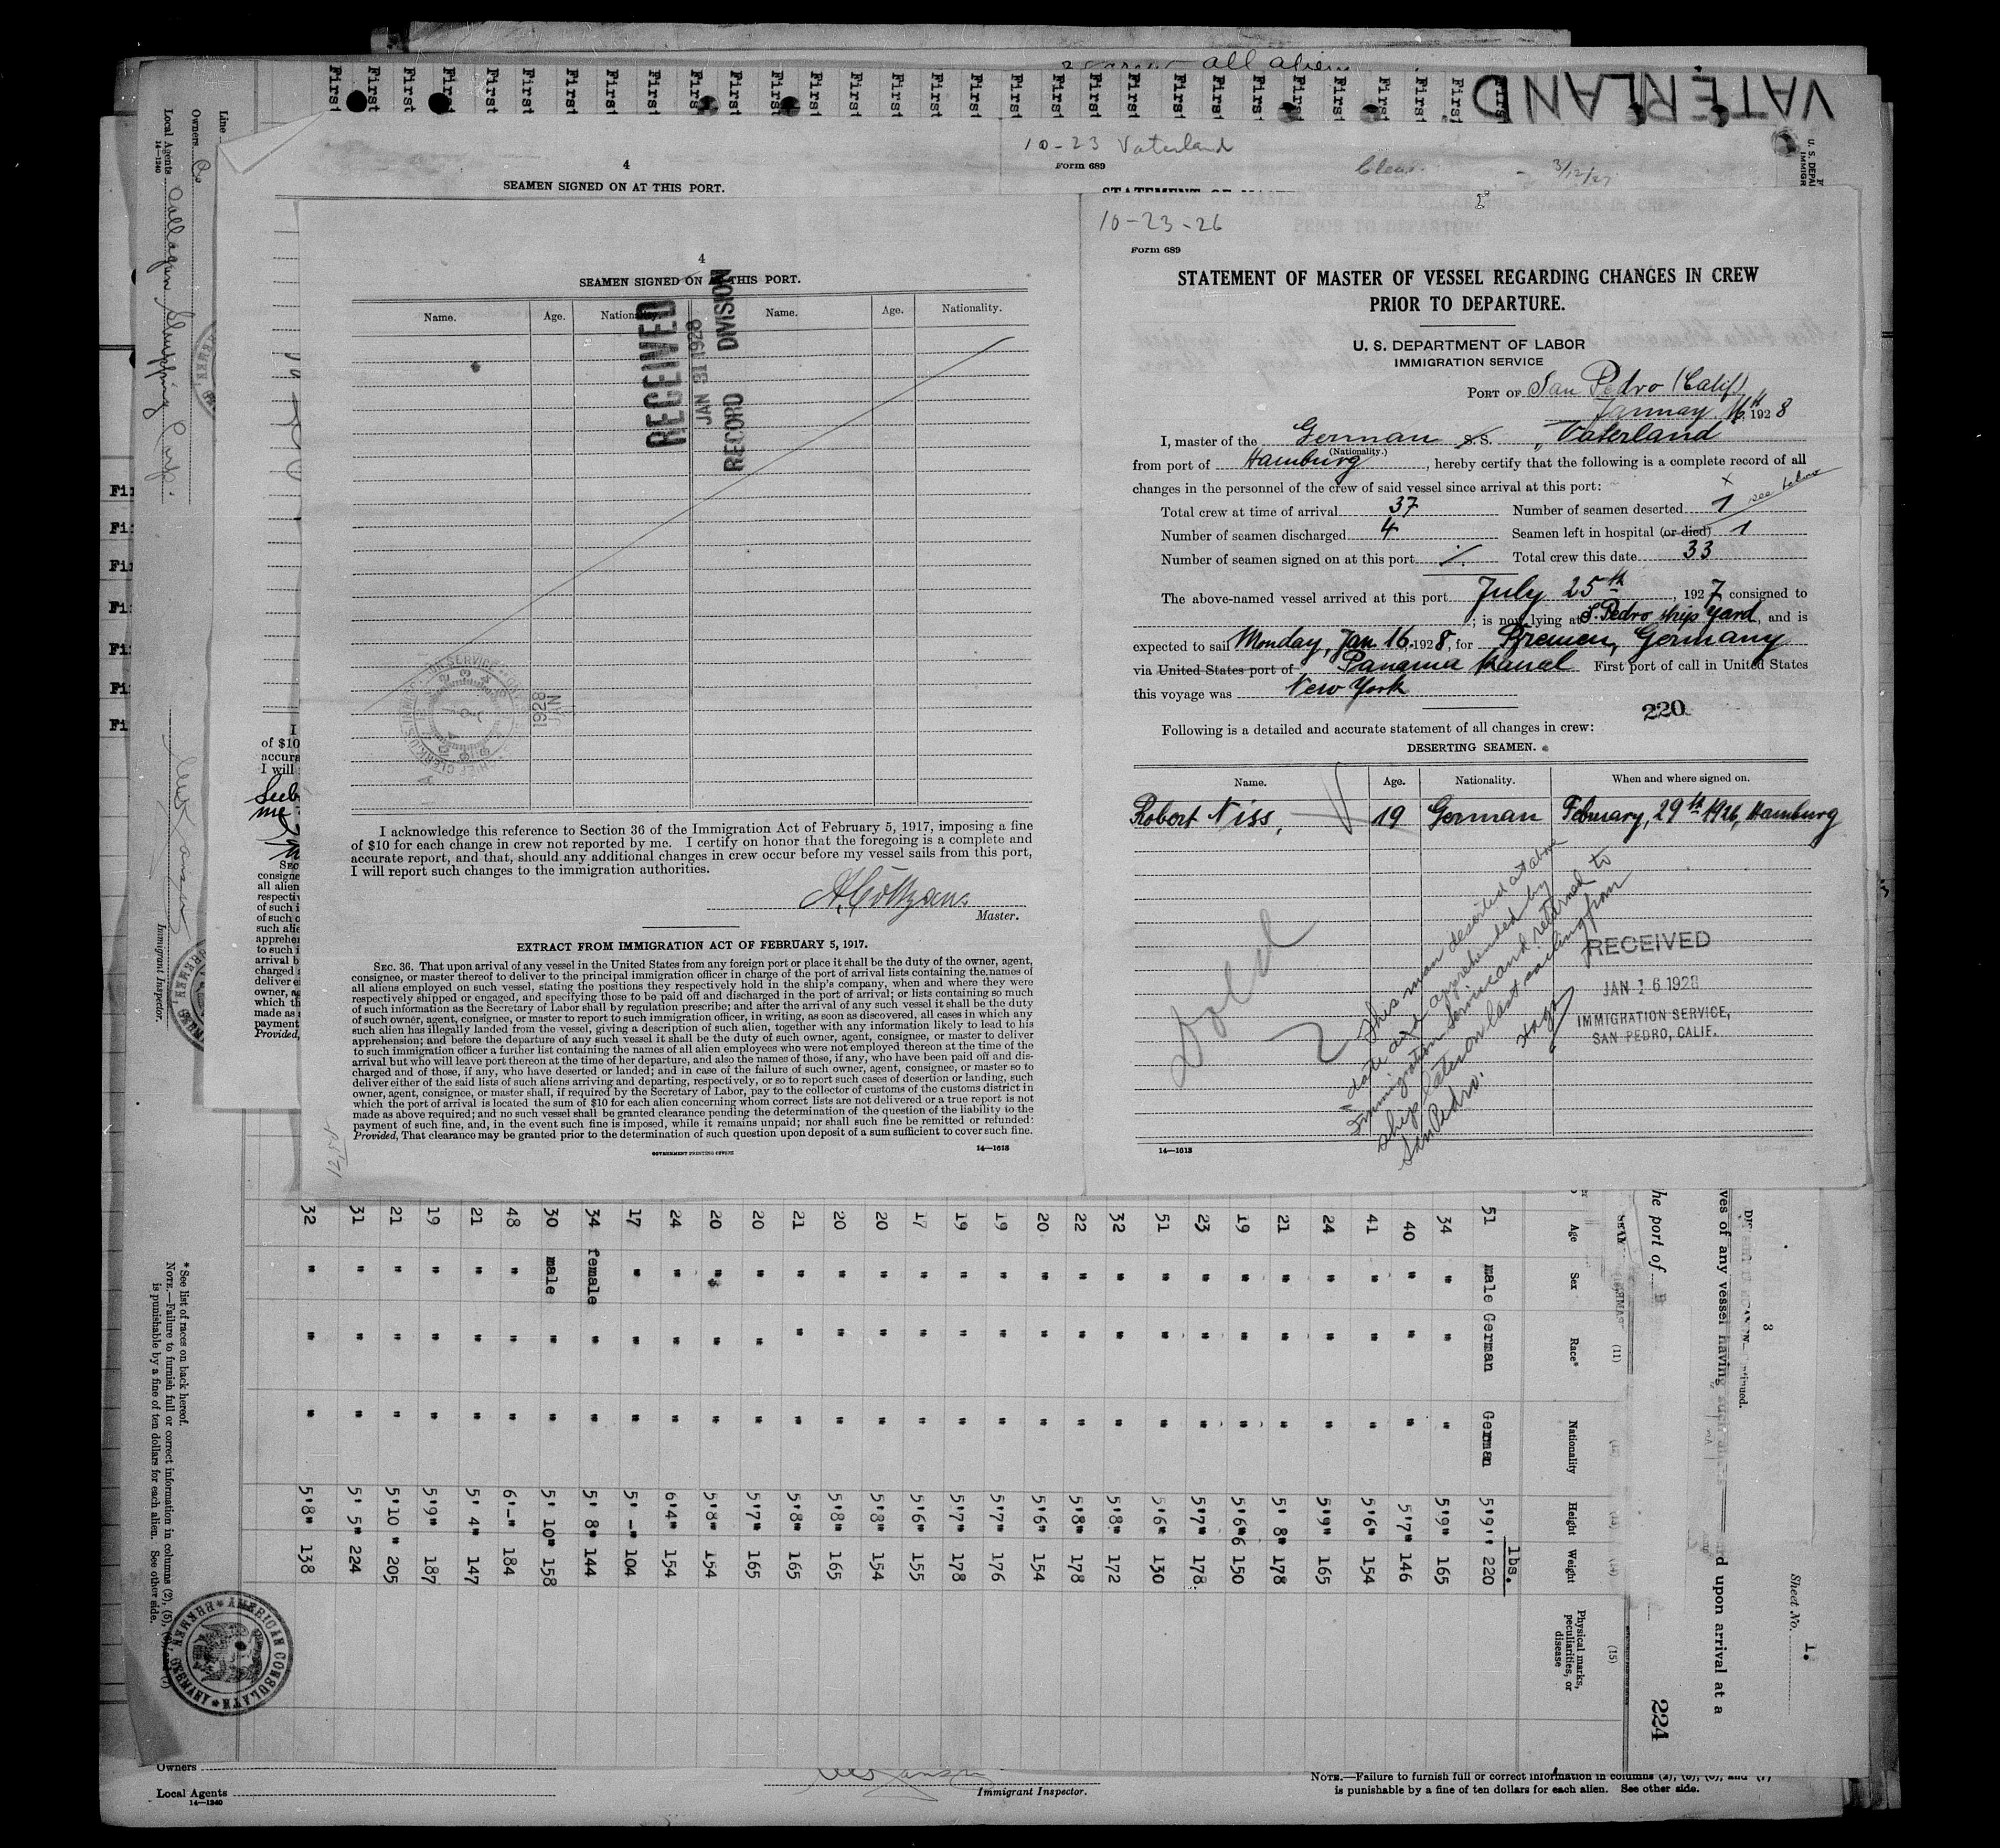 all alien
VATERLAND
First First First First First First First First First First First First First First First First First First First First First First First First First First First First First
10-23 Vaterland
Form 689
Clear. - 3/12/27
4
SEAMEN SIGNED ON AT THIS PORT.
Line
Owners Co
Local Agents
14—1240
Shipping Corp.
Immigrant Inspector.
4
SEAMEN SIGNED ON AT THIS PORT.
Name. Age. Nationality. Name. Age. Nationality.
RECEIVED
JAN 31 1928
RECORD DIVISION
1928
JAN
I acknowledge this reference to Section 36 of the Immigration Act of February 5, 1917, imposing a fine
of $10 for each change in crew not reported by me. I certify on honor that the foregoing is a complete and
accurate report, and that, should any additional changes in crew occur before my vessel sails from this port,
I will report such changes to the immigration authorities.
Master.
EXTRACT FROM IMMIGRATION ACT OF FEBRUARY 5, 1917.
SEC. 36. That upon arrival of any vessel in the United States from any foreign port or place it shall be the duty of the owner, agent,
consignee, or master thereof to deliver to the principal immigration officer in charge of the port of arrival lists containing the names of
all aliens employed on such vessel, stating the positions they respectively hold in the ship's company, when and where they were
respectively shipped or engaged, and specifying those to be paid off and discharged in the port of arrival; or lists containing so much
of such information as the Secretary of Labor shall by regulation prescribe; and after the arrival of any such vessel it shall be the duty
of such owner, agent, consignee, or master to report to such immigration officer, in writing, as soon as discovered, all cases in which any
such alien has illegally landed from the vessel, giving a description of such alien, together with any information likely to lead to his
apprehension; and before the departure of any such vessel it shall be the duty of such owner, agent, consignee, or master to deliver
to such immigration officer a further list containing the names of all alien employees who were not employed thereon at the time of the
arrival but who will leave port thereon at the time of her departure, and also the names of those, if any, who have been paid off and dis-
charged and of those, if any, who have deserted or landed; and in case of the failure of such owner, agent, consignee, or master so to
deliver either of the said lists of such aliens arriving and departing, respectively, or so to report such cases of desertion or landing, such
owner, agent, consignee, or master shall, if required by the Secretary of Labor, pay to the collector of customs of the customs district in
which the port of arrival is located the sum of $10 for each alien concerning whom correct lists are not delivered or a true report is not
made as above required; and no such vessel shall be granted clearance pending the determination of the question of the liability to the
payment of such fine, and, in the event such fine is imposed, while it remains unpaid; nor shall such fine be remitted or refunded:
Provided, That clearance may be granted prior to the determination of such question upon deposit of a sum sufficient to cover such fine.
GOVERNMENT PRINTING OFFICE
14—1613
10-23-26
Form 689
STATEMENT OF MASTER OF VESSEL REGARDING CHANGES IN CREW
PRIOR TO DEPARTURE.
U. S. DEPARTMENT OF LABOR
IMMIGRATION SERVICE
PORT OF San Pedro (Calif)
January 16th 1928
I, master of the German S.S. „Vaterland"
(Nationality.)
from port of Hamburg, hereby certify that the following is a complete record of all
changes in the personnel of the crew of said vessel since arrival at this port:
Total crew at time of arrival 37 Number of seamen deserted 1 x see below
Number of seamen discharged 4 Seamen left in hospital (or died) 1
Number of seamen signed on at this port ⁒ Total crew this date 33
The above-named vessel arrived at this port July 25th, 1927, consigned to
; is now lying at S. Pedro ship Yard, and is
expected to sail Monday, Jan. 16, 1928, for Bremen, Germany
via United States port of Panama Kanal First port of call in United States
this voyage was New York
220
Following is a detailed and accurate statement of all changes in crew:
DESERTING SEAMEN.
Name. Age. Nationality. When and where signed on.
Robert Niss, 19 German February, 29th 1926, Hamburg
This man deserted at above
date and apprehended by
Immigration Service and returned to
ship later on last sailing from
San Pedro.
RECEIVED
JAN 16 1928
IMMIGRATION SERVICE,
SAN PEDRO, CALIF.
14—1613
3
Sheet No. 1.
upon arrival at a
the port of
224
(11)
(15)
Age Sex Race* Nationality Height Weight Physical marks, peculiarities, or disease
lbs.
51 male German German 5'9" 220
34 " " " 5'9" 165
40 " " " 5'7" 146
41 " " " 5'6" 154
24 " " " 5'9" 165
21 " " " 5' 8" 178
19 " " " 5'6"6 150
23 " " " 5'7" 178
51 " " " 5'6" 130
32 " " " 5'8" 172
22 " " " 5'8" 178
20 " " " 5'6" 154
19 " " " 5'7" 176
19 " " " 5'7" 178
17 " " " 5'6" 155
20 " " " 5'8" 154
20 " " " 5'8" 165
21 " " " 5'8" 165
20 " " " 5'7" 165
20 " " " 5'8" 154
24 " " " 6'4" 154
17 " " " 5'-" 104
34 female " " 5' 8" 144
30 male " " 5' 10" 158
48 " " " 6'-" 184
21 " " " 5' 4" 147
19 " " " 5'9" 187
21 " " " 5'10" 205
31 " " " 5' 5" 224
32 " " " 5'8" 138
* See list of races on back hereof.
NOTE.—Failure to furnish full or correct information in columns (2), (5),
is punishable by a fine of ten dollars for each alien. See other side.
AMERICAN CONSULATE BREMEN, GERMANY
Owners
Local Agents
14—1240
Immigrant Inspector.
NOTE.—Failure to furnish full or correct information in columns (2), (5), (6), and (7)
is punishable by a fine of ten dollars for each alien. See other side.